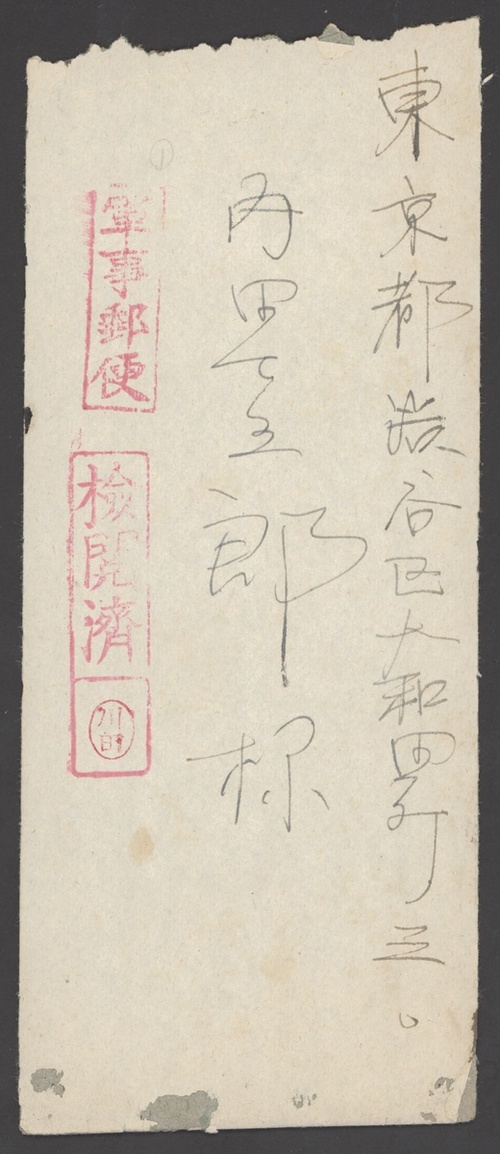 東京都渋谷区大和田町三〇
内田五郎様
軍事郵便
検閲済
①